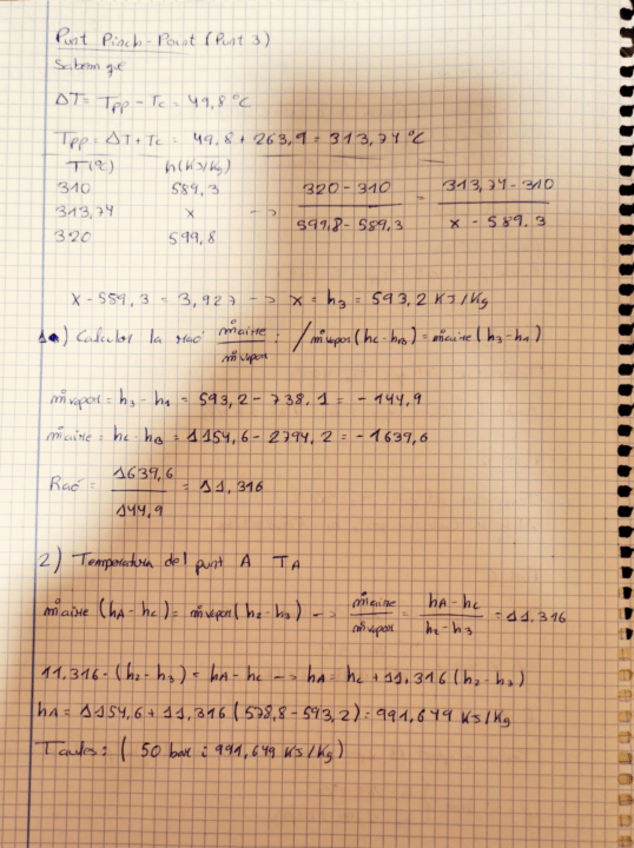 Punt Pinch-Point (Punt 3)
Sabem que
ΔT = Tpp - Tc = 49,8 °C
Tpp = ΔT + Tc = 49,8 + 263,9 = 313,74 °C
T(°C) h(KJ/Kg)
310 589,3
313,74 x -> (320-310)/(599,8-589,3) = (313,74-310)/(x-589,3)
320 599,8
x-589,3 = 3,927 -> x = h3 = 593,2 KJ/Kg
1a) Calcular la raó ṁaire/ṁvapor : / ṁvapor (hc-hB) = ṁaire (h3-h1)
ṁvapor = h3 - h1 = 593,2 - 738,1 = -144,9
ṁaire = hc - hB = 1154,6 - 2794,2 = -1639,6
Raó = 1639,6/144,9 = 11,316
2) Temperatura del punt A TA
ṁaire (hA-hc) = ṁvapor (h2-h3) -> ṁaire/ṁvapor = (hA-hc)/(h2-h3) = 11,316
11,316·(h2-h3) = hA-hc -> hA = hc + 11,316 (h2-h3)
hA = 1154,6 + 11,316 (578,8-593,2) = 991,649 KJ/Kg
Taules: ( 50 bar i 991,649 KJ/Kg)